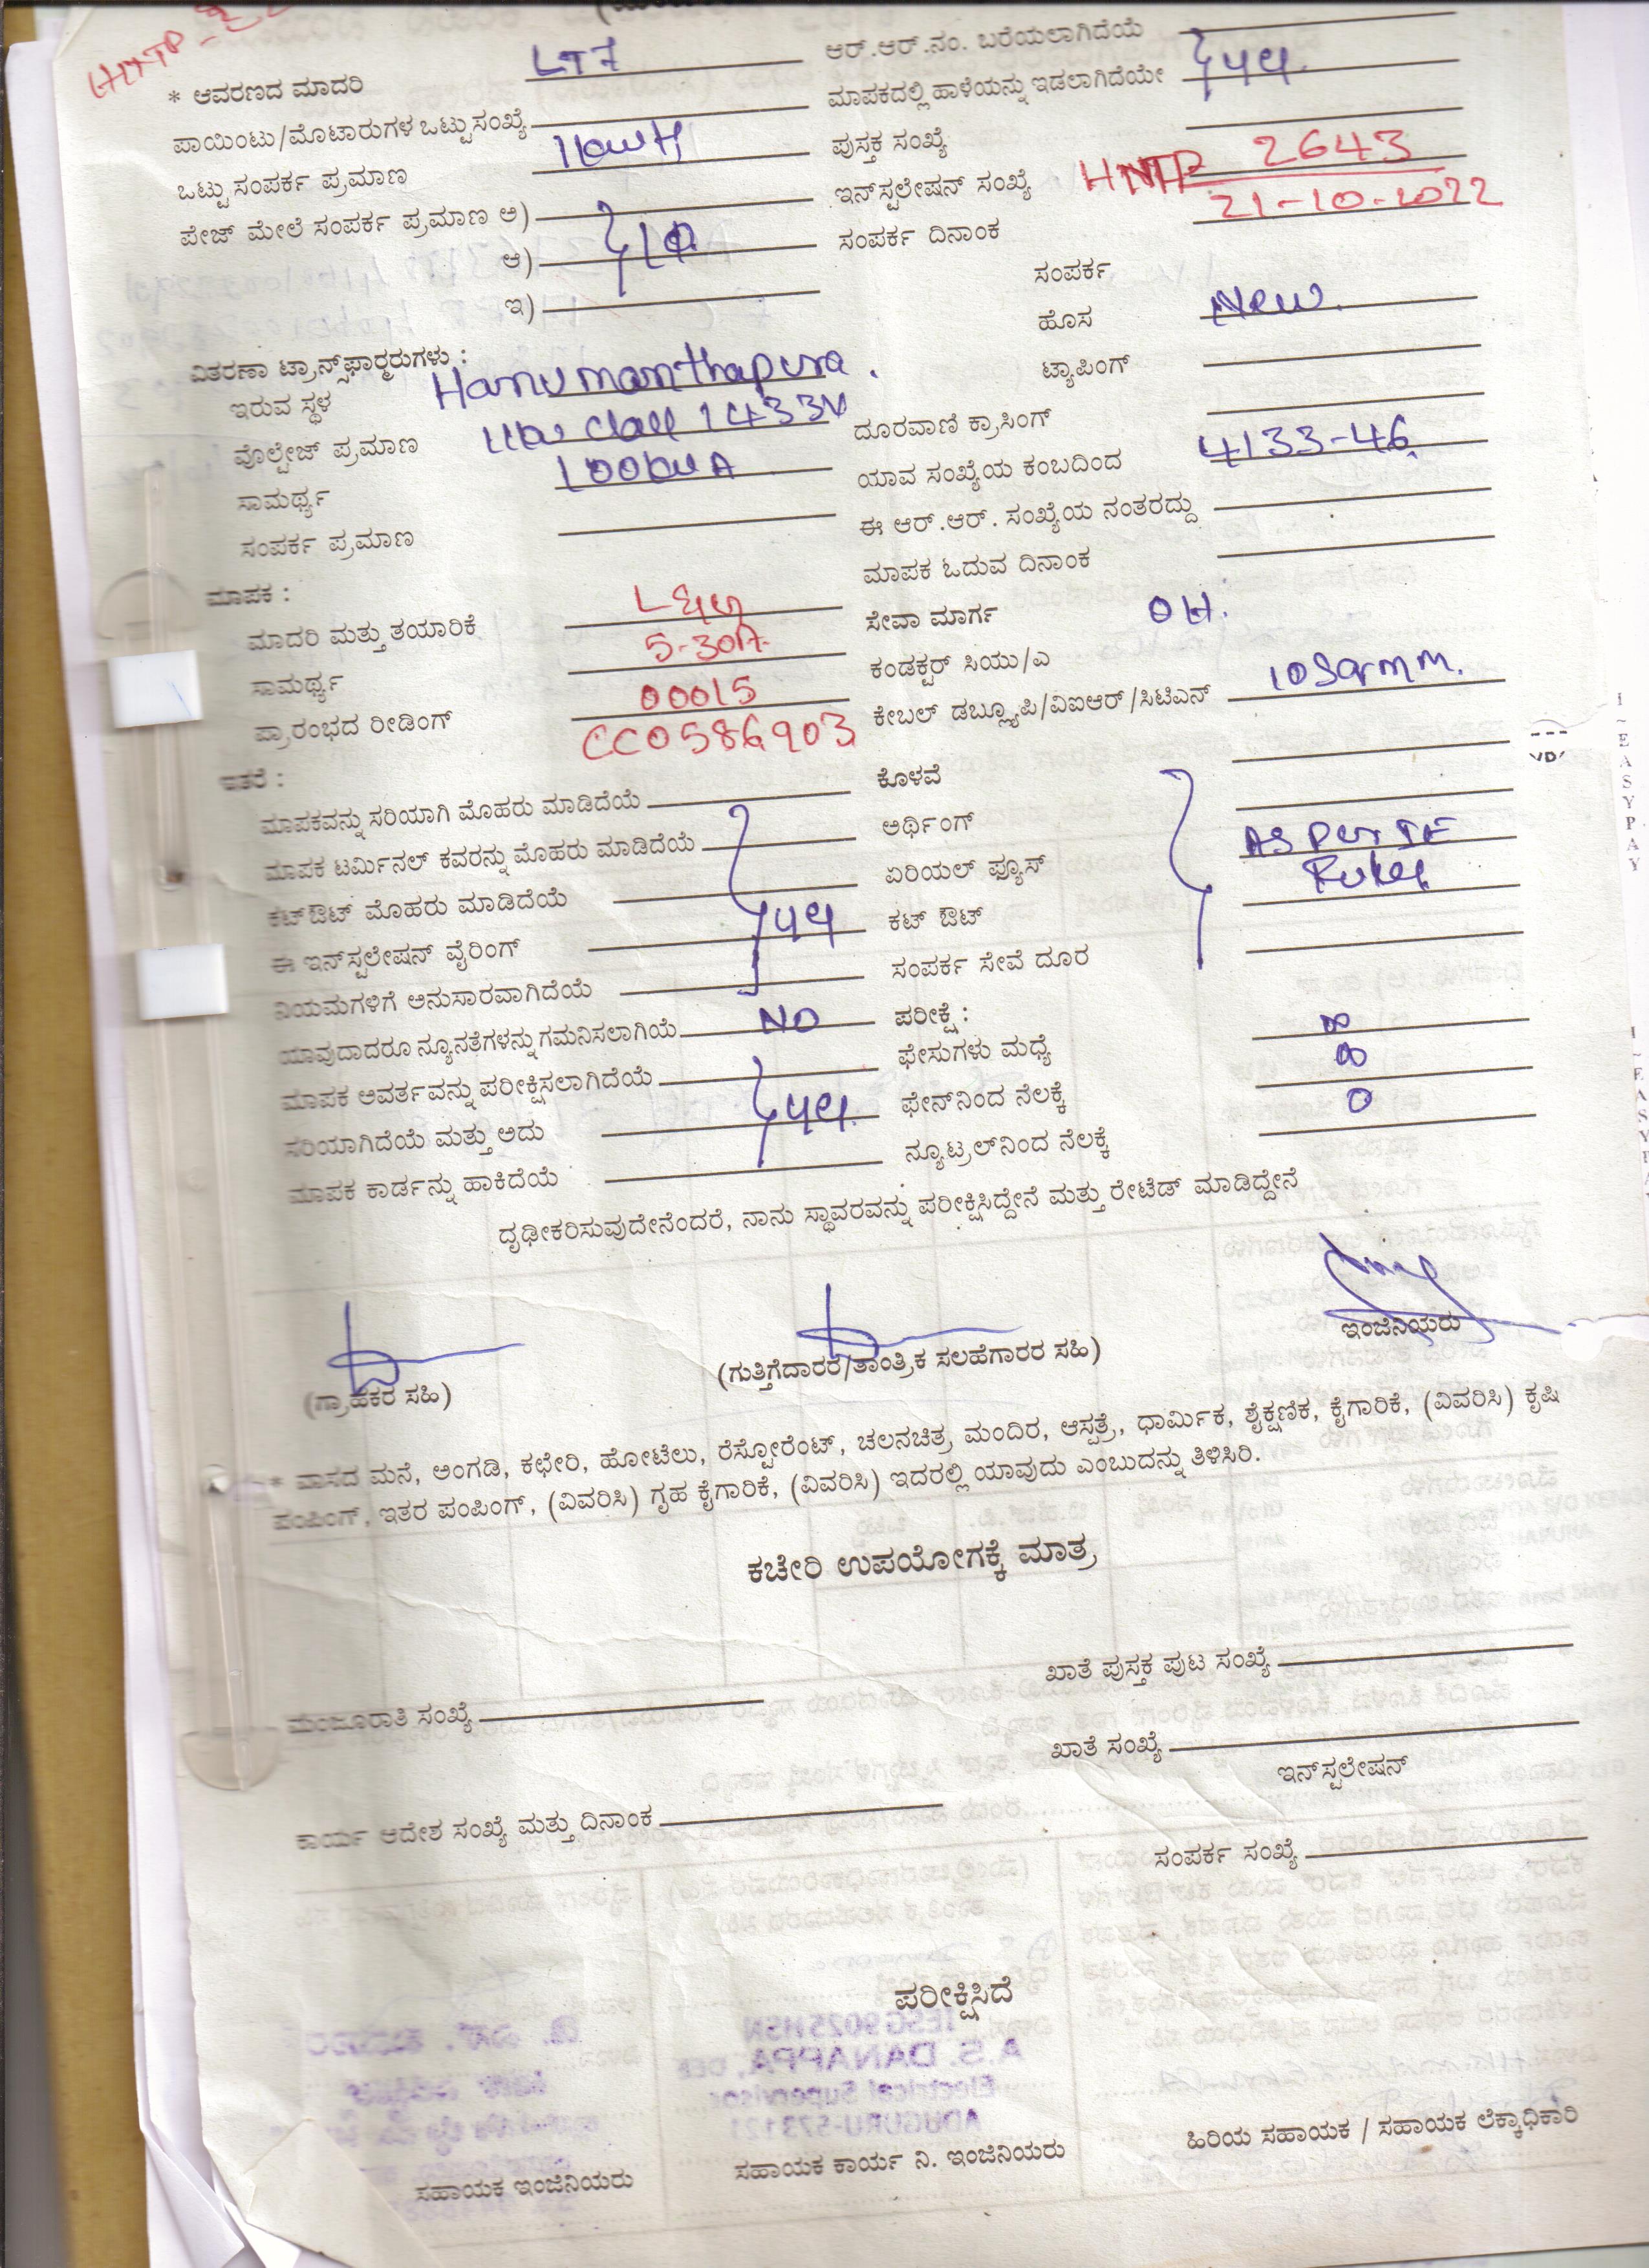 * ಆವರಣದ ಮಾದರಿ LT7 ಆರ್.ಆರ್.ನಂ. ಬರೆಯಲಾಗಿದೆಯೆ
ಪಾಯಿಂಟು/ಮೊಟಾರುಗಳ ಒಟ್ಟು ಸಂಖ್ಯೆ ಮಾಪಕದಲ್ಲಿ ಹಾಳೆಯನ್ನು ಇಡಲಾಗಿದೆಯೇ
ಒಟ್ಟು ಸಂಪರ್ಕ ಪ್ರಮಾಣ ಪುಸ್ತಕ ಸಂಖ್ಯೆ
ಪೇಜ್ ಮೇಲೆ ಸಂಪರ್ಕ ಪ್ರಮಾಣ ಅ) ಇನ್‌ಸ್ಟಲೇಷನ್ ಸಂಖ್ಯೆ HNTP 2643
ಆ) ಸಂಪರ್ಕ ದಿನಾಂಕ 21-10-2022
ಇ) ಸಂಪರ್ಕ
ಹೊಸ New.
ವಿತರಣಾ ಟ್ರಾನ್ಸ್‌ಫಾರ್ಮರುಗಳು :
ಇರುವ ಸ್ಥಳ Hanumanthapura. ಟ್ಯಾಪಿಂಗ್
ವೊಲ್ಟೇಜ್ ಪ್ರಮಾಣ 433V ದೂರವಾಣಿ ಕ್ರಾಸಿಂಗ್
ಸಾಮರ್ಥ್ಯ 100kVA ಯಾವ ಸಂಖ್ಯೆಯ ಕಂಬದಿಂದ 4133-46
ಸಂಪರ್ಕ ಪ್ರಮಾಣ ಈ ಆರ್.ಆರ್. ಸಂಖ್ಯೆಯ ನಂತರದ್ದು
ಮಾಪಕ : ಮಾಪಕ ಓದುವ ದಿನಾಂಕ
ಮಾದರಿ ಮತ್ತು ತಯಾರಿಕೆ ಸೇವಾ ಮಾರ್ಗ OH.
ಸಾಮರ್ಥ್ಯ 5-30A ಕಂಡಕ್ಟರ್ ಸಿಯು/ಎ
ಪ್ರಾರಂಭದ ರೀಡಿಂಗ್ 00015 ಕೇಬಲ್ ಡಬ್ಲ್ಯೂಪಿ/ವಿಐಆರ್/ಸಿಟಿಎನ್ 10Sqrmm.
CC0586903
ಇತರೆ : ಕೊಳವೆ
ಮಾಪಕವನ್ನು ಸರಿಯಾಗಿ ಮೊಹರು ಮಾಡಿದೆಯೆ ಅರ್ಥಿಂಗ್ AS per IE
ಮಾಪಕ ಟರ್ಮಿನಲ್ ಕವರನ್ನು ಮೊಹರು ಮಾಡಿದೆಯೆ ಏರಿಯಲ್ ಫ್ಯೂಸ್ Rules
ಕಟ್‌ಔಟ್ ಮೊಹರು ಮಾಡಿದೆಯೆ ಕಟ್ ಔಟ್
ಈ ಇನ್‌ಸ್ಟಲೇಷನ್ ವೈರಿಂಗ್ ಸಂಪರ್ಕ ಸೇವೆ ದೂರ
ನಿಯಮಗಳಿಗೆ ಅನುಸಾರವಾಗಿದೆಯೆ
ಯಾವುದಾದರೂ ನ್ಯೂನತೆಗಳನ್ನು ಗಮನಿಸಲಾಗಿಯೆ NO ಪರೀಕ್ಷೆ :
ಮಾಪಕ ಆವರ್ತವನ್ನು ಪರೀಕ್ಷಿಸಲಾಗಿದೆಯೆ ಫೇಸುಗಳು ಮಧ್ಯೆ ∞
ಸರಿಯಾಗಿದೆಯೆ ಮತ್ತು ಅದು ಫೇನ್‌ನಿಂದ ನೆಲಕ್ಕೆ ∞
ಮಾಪಕ ಕಾರ್ಡನ್ನು ಹಾಕಿದೆಯೆ ನ್ಯೂಟ್ರಲ್‌ನಿಂದ ನೆಲಕ್ಕೆ 0
ದೃಢೀಕರಿಸುವುದೇನೆಂದರೆ, ನಾನು ಸ್ಥಾವರವನ್ನು ಪರೀಕ್ಷಿಸಿದ್ದೇನೆ ಮತ್ತು ರೇಟೆಡ್ ಮಾಡಿದ್ದೇನೆ
(ಗ್ರಾಹಕರ ಸಹಿ) (ಗುತ್ತಿಗೆದಾರರ/ತಾಂತ್ರಿಕ ಸಲಹೆಗಾರರ ಸಹಿ) ಇಂಜಿನಿಯರು
* ವಾಸದ ಮನೆ, ಅಂಗಡಿ, ಕಛೇರಿ, ಹೋಟೆಲು, ರೆಸ್ಟೋರೆಂಟ್, ಚಲನಚಿತ್ರ ಮಂದಿರ, ಆಸ್ಪತ್ರೆ, ಧಾರ್ಮಿಕ, ಶೈಕ್ಷಣಿಕ, ಕೈಗಾರಿಕೆ, (ವಿವರಿಸಿ) ಕೃಷಿ
ಪಂಪಿಂಗ್, ಇತರ ಪಂಪಿಂಗ್, (ವಿವರಿಸಿ) ಗೃಹ ಕೈಗಾರಿಕೆ, (ವಿವರಿಸಿ) ಇದರಲ್ಲಿ ಯಾವುದು ಎಂಬುದನ್ನು ತಿಳಿಸಿರಿ.
ಕಚೇರಿ ಉಪಯೋಗಕ್ಕೆ ಮಾತ್ರ
ಮಂಜೂರಾತಿ ಸಂಖ್ಯೆ ಖಾತೆ ಪುಸ್ತಕ ಪುಟ ಸಂಖ್ಯೆ
ಖಾತೆ ಸಂಖ್ಯೆ
ಇನ್‌ಸ್ಟಲೇಷನ್
ಕಾರ್ಯ ಆದೇಶ ಸಂಖ್ಯೆ ಮತ್ತು ದಿನಾಂಕ ಸಂಪರ್ಕ ಸಂಖ್ಯೆ
ಪರೀಕ್ಷಿಸಿದೆ
ಸಹಾಯಕ ಇಂಜಿನಿಯರು ಸಹಾಯಕ ಕಾರ್ಯ ನಿ. ಇಂಜಿನಿಯರು ಹಿರಿಯ ಸಹಾಯಕ / ಸಹಾಯಕ ಲೆಕ್ಕಾಧಿಕಾರಿ